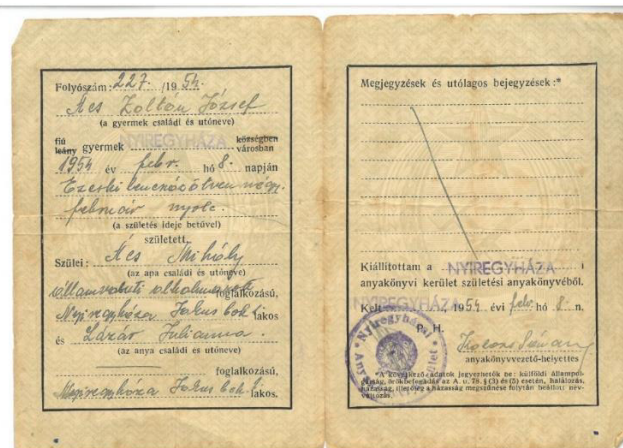 Folyószám: 227. /1954.
Ács Zoltán József
(a gyermek családi és utóneve)
fiú leány gyermek NYIREGYHÁZA községben városban
1954 év febr. hó 8. napján
Ezerkilencszázötvennégy.
február nyolc.
(a születés ideje betűvel)
született.
Szülei: Ács Mihály
(az apa családi és utóneve)
államvasuti foglalkozású,
Nyíregyháza Jókus bok. lakos
és Lázár Julianna.
(az anya családi és utóneve)
foglalkozású,
Nyíregyháza Jókus bok. lakos.
Megjegyzések és utólagos bejegyzések:*
Kiállítottam a NYIREGYHÁZA i
anyakönyvi kerület születési anyakönyvéből.
NYIREGYHÁZA
Kelt 1954 évi febr hó 8 n.
P. H.
anyakönyvvezető-helyettes
*A következő adatok jegyezhetők be: külföldi állampolgárság, örökbefogadás az A. u. 78. § (3) és (5) esetén, halálozás,
házasság, illetőleg a házasság megszűnése folytán beállott névváltozás.
Nyíregyházai